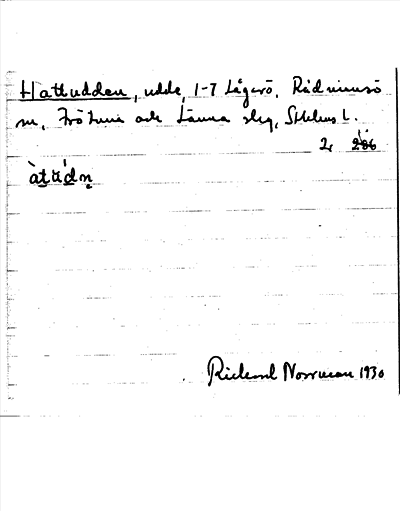 Hattudden, udde, 1-7 Lågarö, Rådmansö
sn, Frötuna och Länna skg, Sthlms l.
2,
àtŭ́dn̥
Rickard Norrman 1930